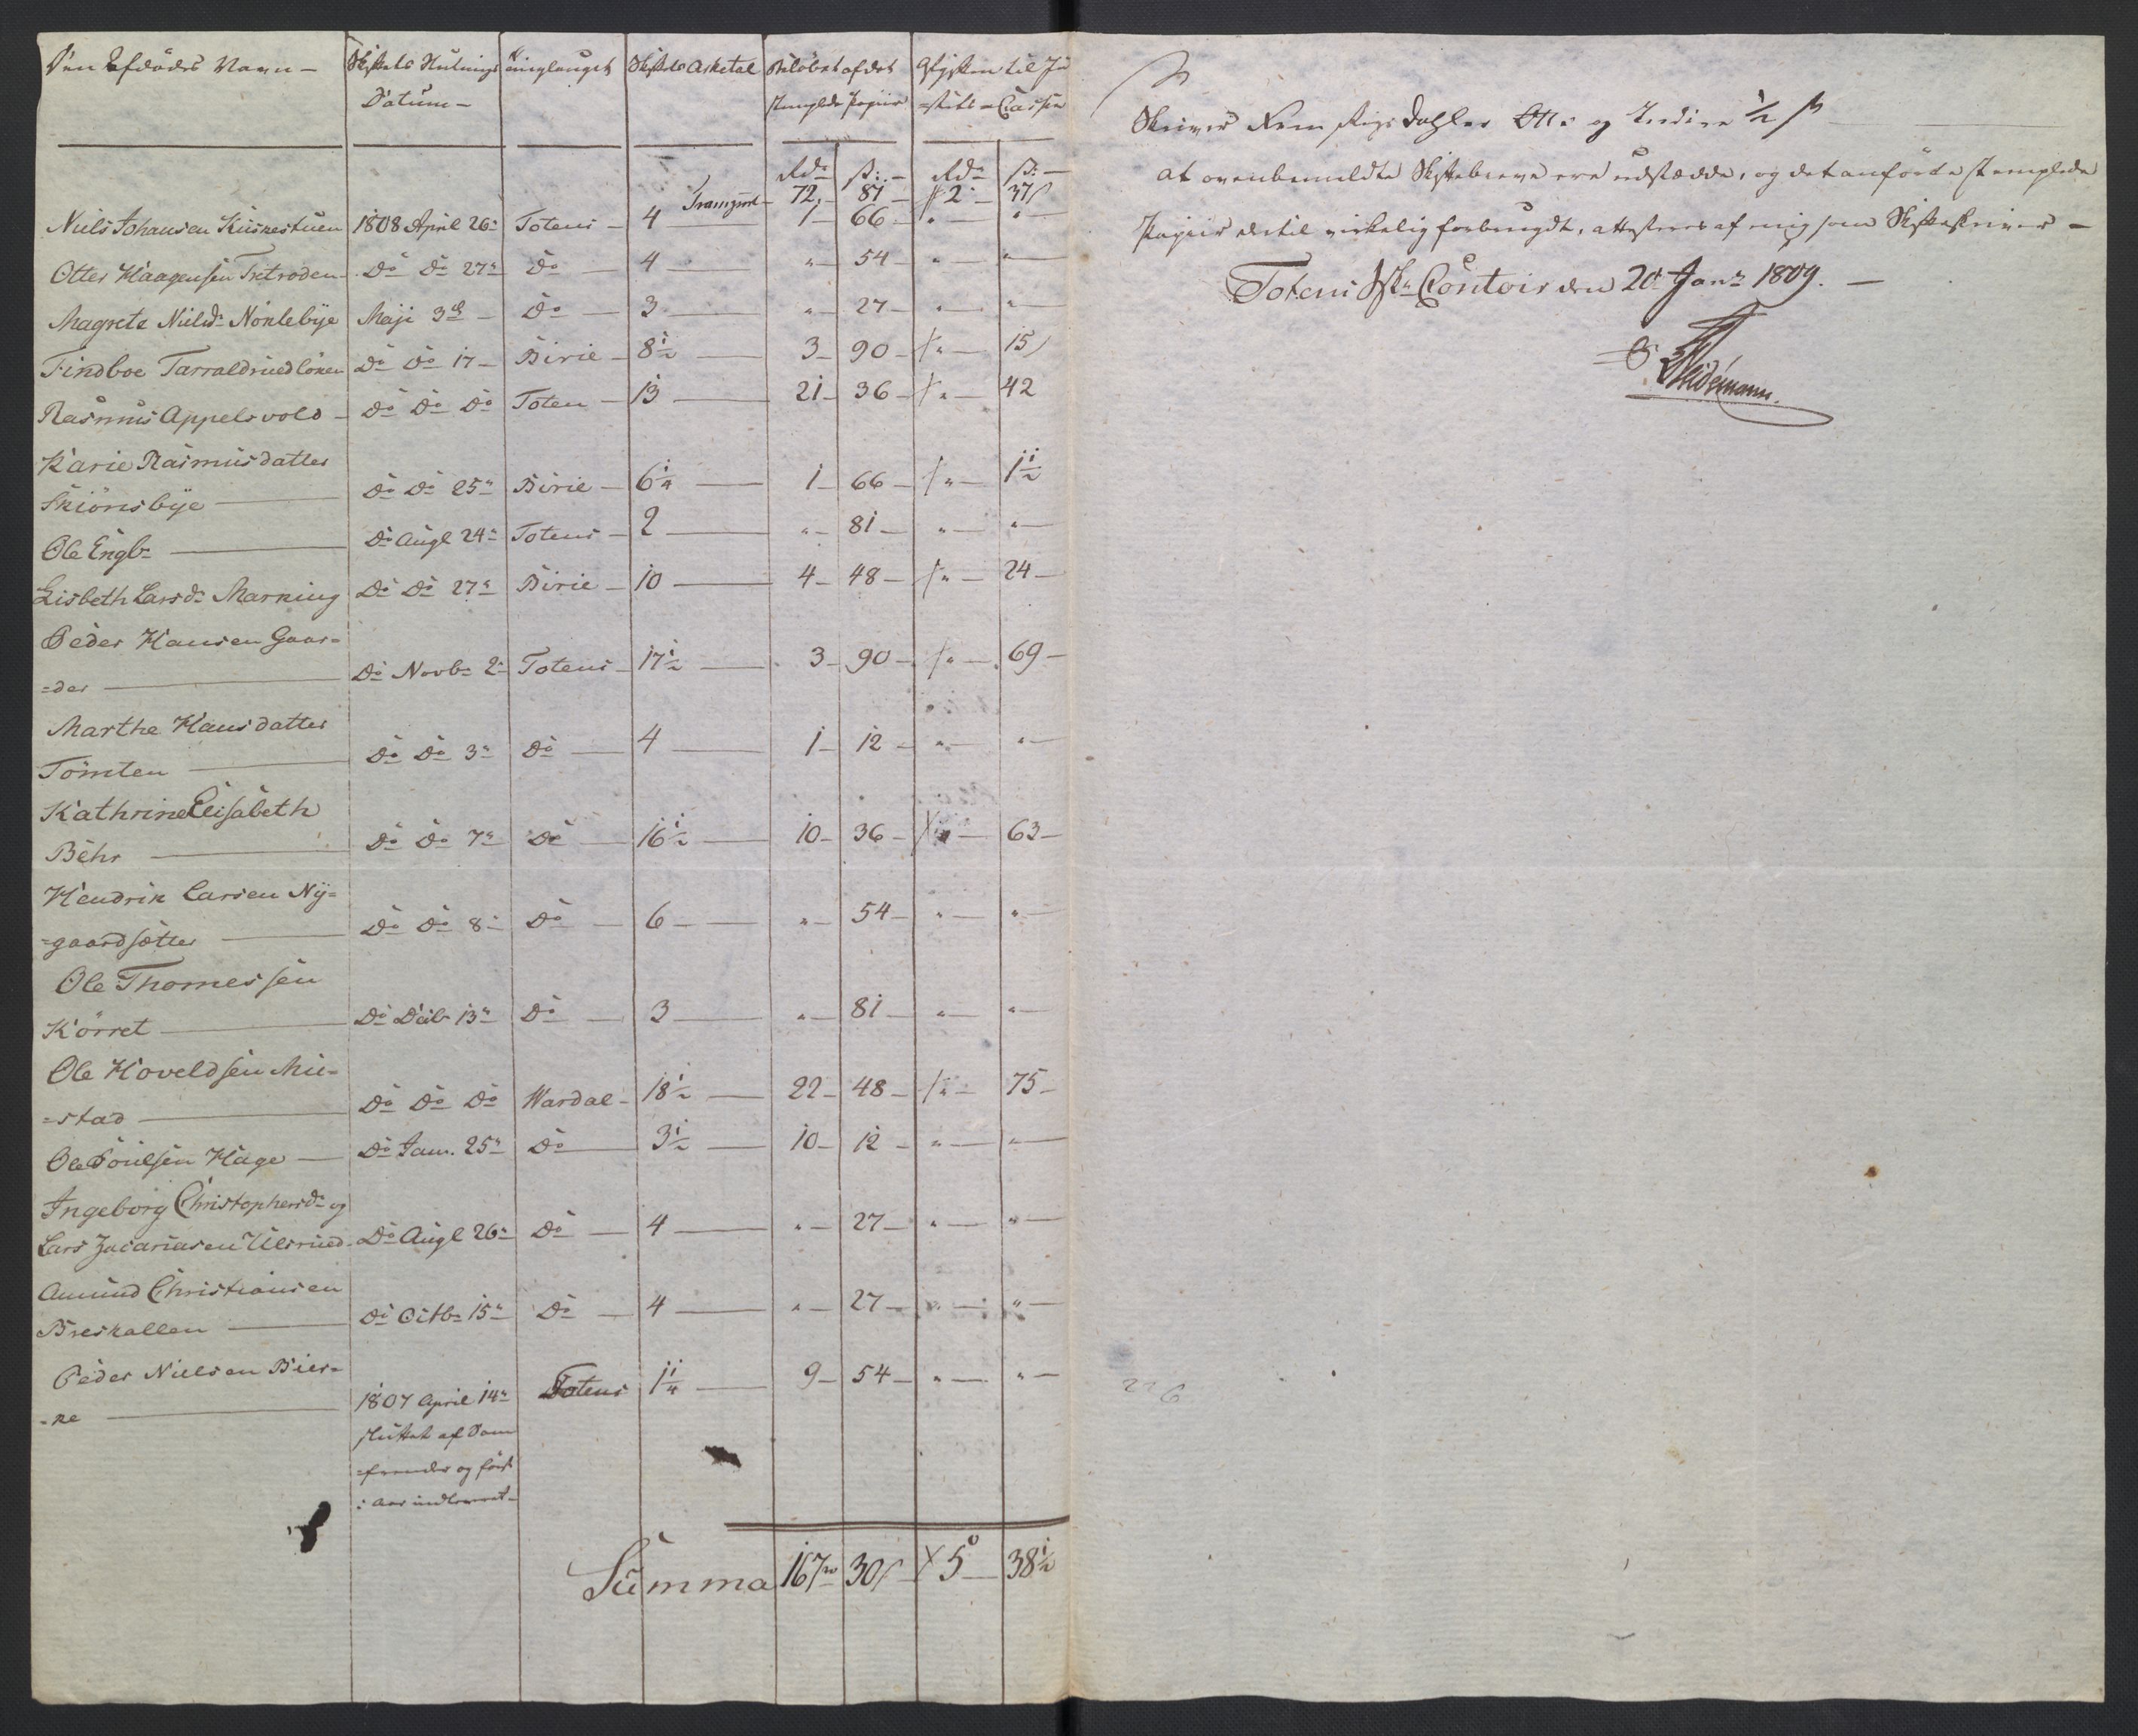 Den Afdødes Navn — Skiftets Slutnings Tinglauget Skiftets Arketal Beløbet af det Afgiften til Ju
Datum — stemplede Papiir =stits=Cassen
Rdr ß: — Rdr ß: —
Transport — 72 — 81 — 2 — 37
Niels Johansen Kiisnestuen 1808 April 26: Totens — 4 — 1 — 66 — " — " —
Otter Haagensen Tretroden — Do Do 27de Do — 4 — " — 54 — " — " —
Magrete Nielsd: Nordlebÿe Maji 3de — Do — 3 — " — 27 — " — " —
Findboe Tarraldruedlöken Do Do 17 — Birie — 8½ — 3 — 90 — " — 15
Rasmus Appelsvold — Do Do Do Toten — 13 — 21 — 36 — " — 42
Karie Rasmusdatter
Skiönsbÿe — Do Do 25de Birie — 6¼ — 1 — 66 — " — 1½
Ole Engbr — Do Augl 24de Totens — 2 — " — 81 — " — " —
Lisbeth Larsd: Marning Do Do 27de Birie — 10 — 4 — 48 — " — 24 —
Peder Hansen Gaar=
=der — Do Novbr 2: Totens — 17½ — 3 — 90 — " — 69 —
Marthe Hansdatter
Tömten — Do Do 3de Do — 4 — 1 — 12 — " — " —
Kathrine Elisabeth
Behr — Do Do 7de Do — 16½ — 10 — 36 — " — 63 —
Hendrik Larsen Nÿ=
=gaardsætter — Do Do 8de Do — 6 — " — 54 — " — " —
Ole Thomessen
Körret — Do Decbr 13de Do — 3 — " — 81 — " — " —
Ole Hoveldsen Mu=
=stad — Do Do Do Wardal — 18½ — 22 — 48 — " — 75 —
Ole Poulsen Hage — Do Jan. 25de Do — 3½ — 10 — 12 — " — " —
Ingeborg Christophersd: og
Lars Zacariasen Ulsrued — Do Augl 26de Do — 4 — " — 27 — " — " —
Amund Christiansen
Breskallen — Do Octbr 15de Do — 4 — " — 27 — " — " —
Peder Nielsen Bier=
=ke — 1807 April 14de Totens 1¼ — 9 — 54 — " — " —
sluttet af Sam
=frender og först
i Aar indleveret —
Summa 167 30 5 — 38½
Skriver Fem Rigsdahler Otte og Tredive ½ ß
at ovenbemeldte Skiftebreve ere udstædde, og det anförte stemplede
Papiir dertil virkelig forbrugdt, attesteres af mig som Skifteskriver —
Totens Contoir den 20de Janr 1809. —
Wedemann.